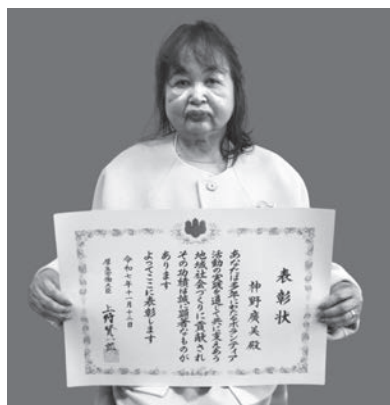 表彰状
神野廣美殿
あなたは多年にわたるボランティア
活動の実践を通して共に支えあう
地域社会づくりに貢献され
その功績は誠に顕著なものが
あります
よってここに表彰します
令和七年十一月十三日
厚生労働大臣